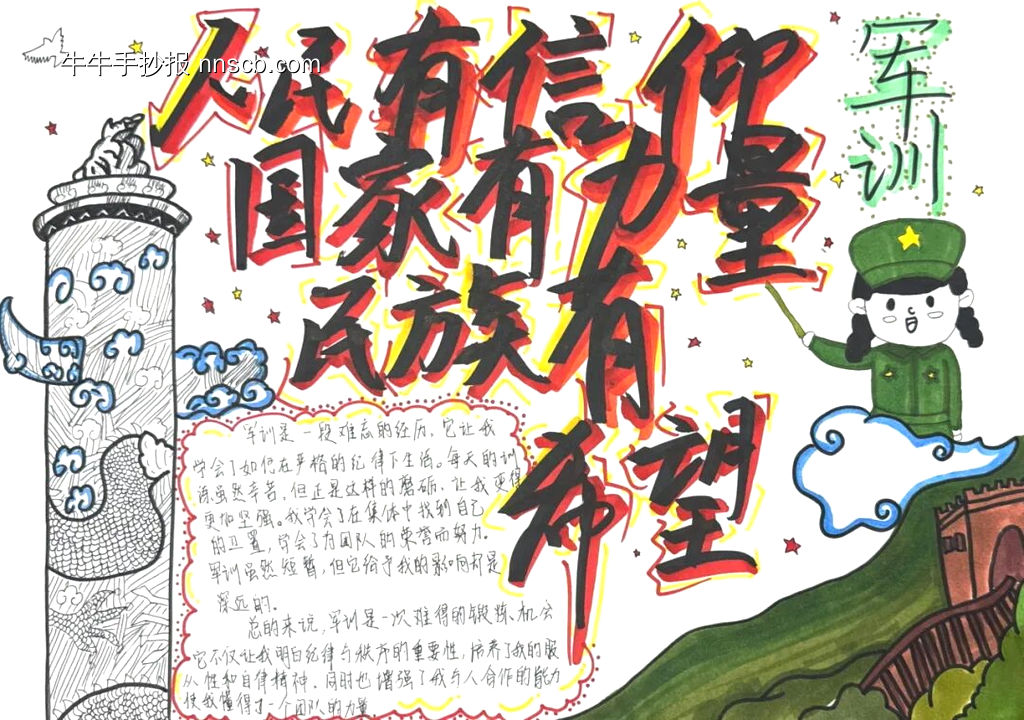 牛牛手抄报 nnscb.com
人民有信仰
国家有力量
民族有
希望
军训
军训是一段难忘的经历,它让我
学会了如何在严格的纪律下生活。每天的训
练虽然辛苦,但正是这样的磨砺,让我变得
更加坚强。我学会了在集体中找到自己
的位置,学会了为团队的荣誉而努力。
军训虽然短暂,但它给予我的影响却是
深远的。
总的来说,军训是一次难得的锻炼机会
它不仅让我明白纪律与秩序的重要性,培养了我的服
从性和自律精神。同时也增强了我与人合作的能力
使我懂得了一个团队的力量